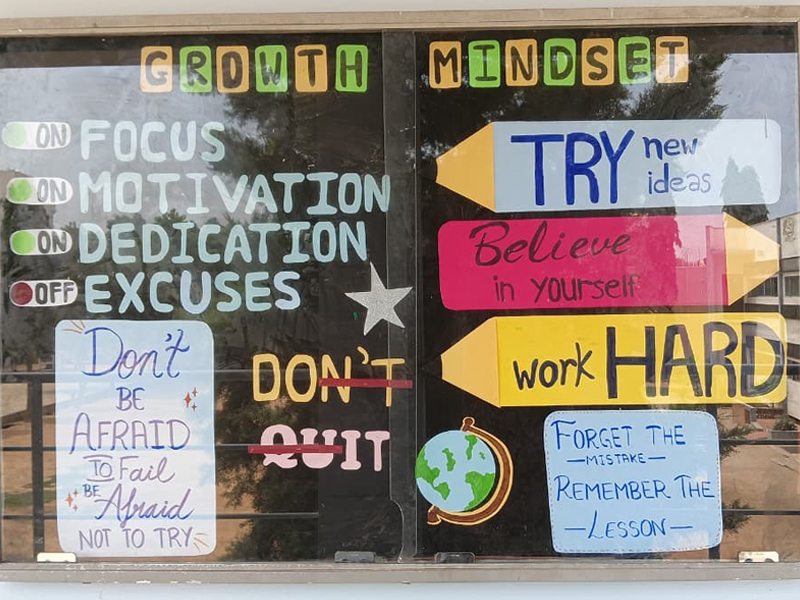 GROWTH MINDSET
ON FOCUS
ON MOTIVATION
ON DEDICATION
OFF EXCUSES
Don't
BE
AFRAID
TO Fail
BE Afraid
NOT TO TRY
DON'T
QUIT
TRY new
ideas
Believe
in yourself
work HARD
FORGET THE
—MISTAKE—
REMEMBER THE
—LESSON—